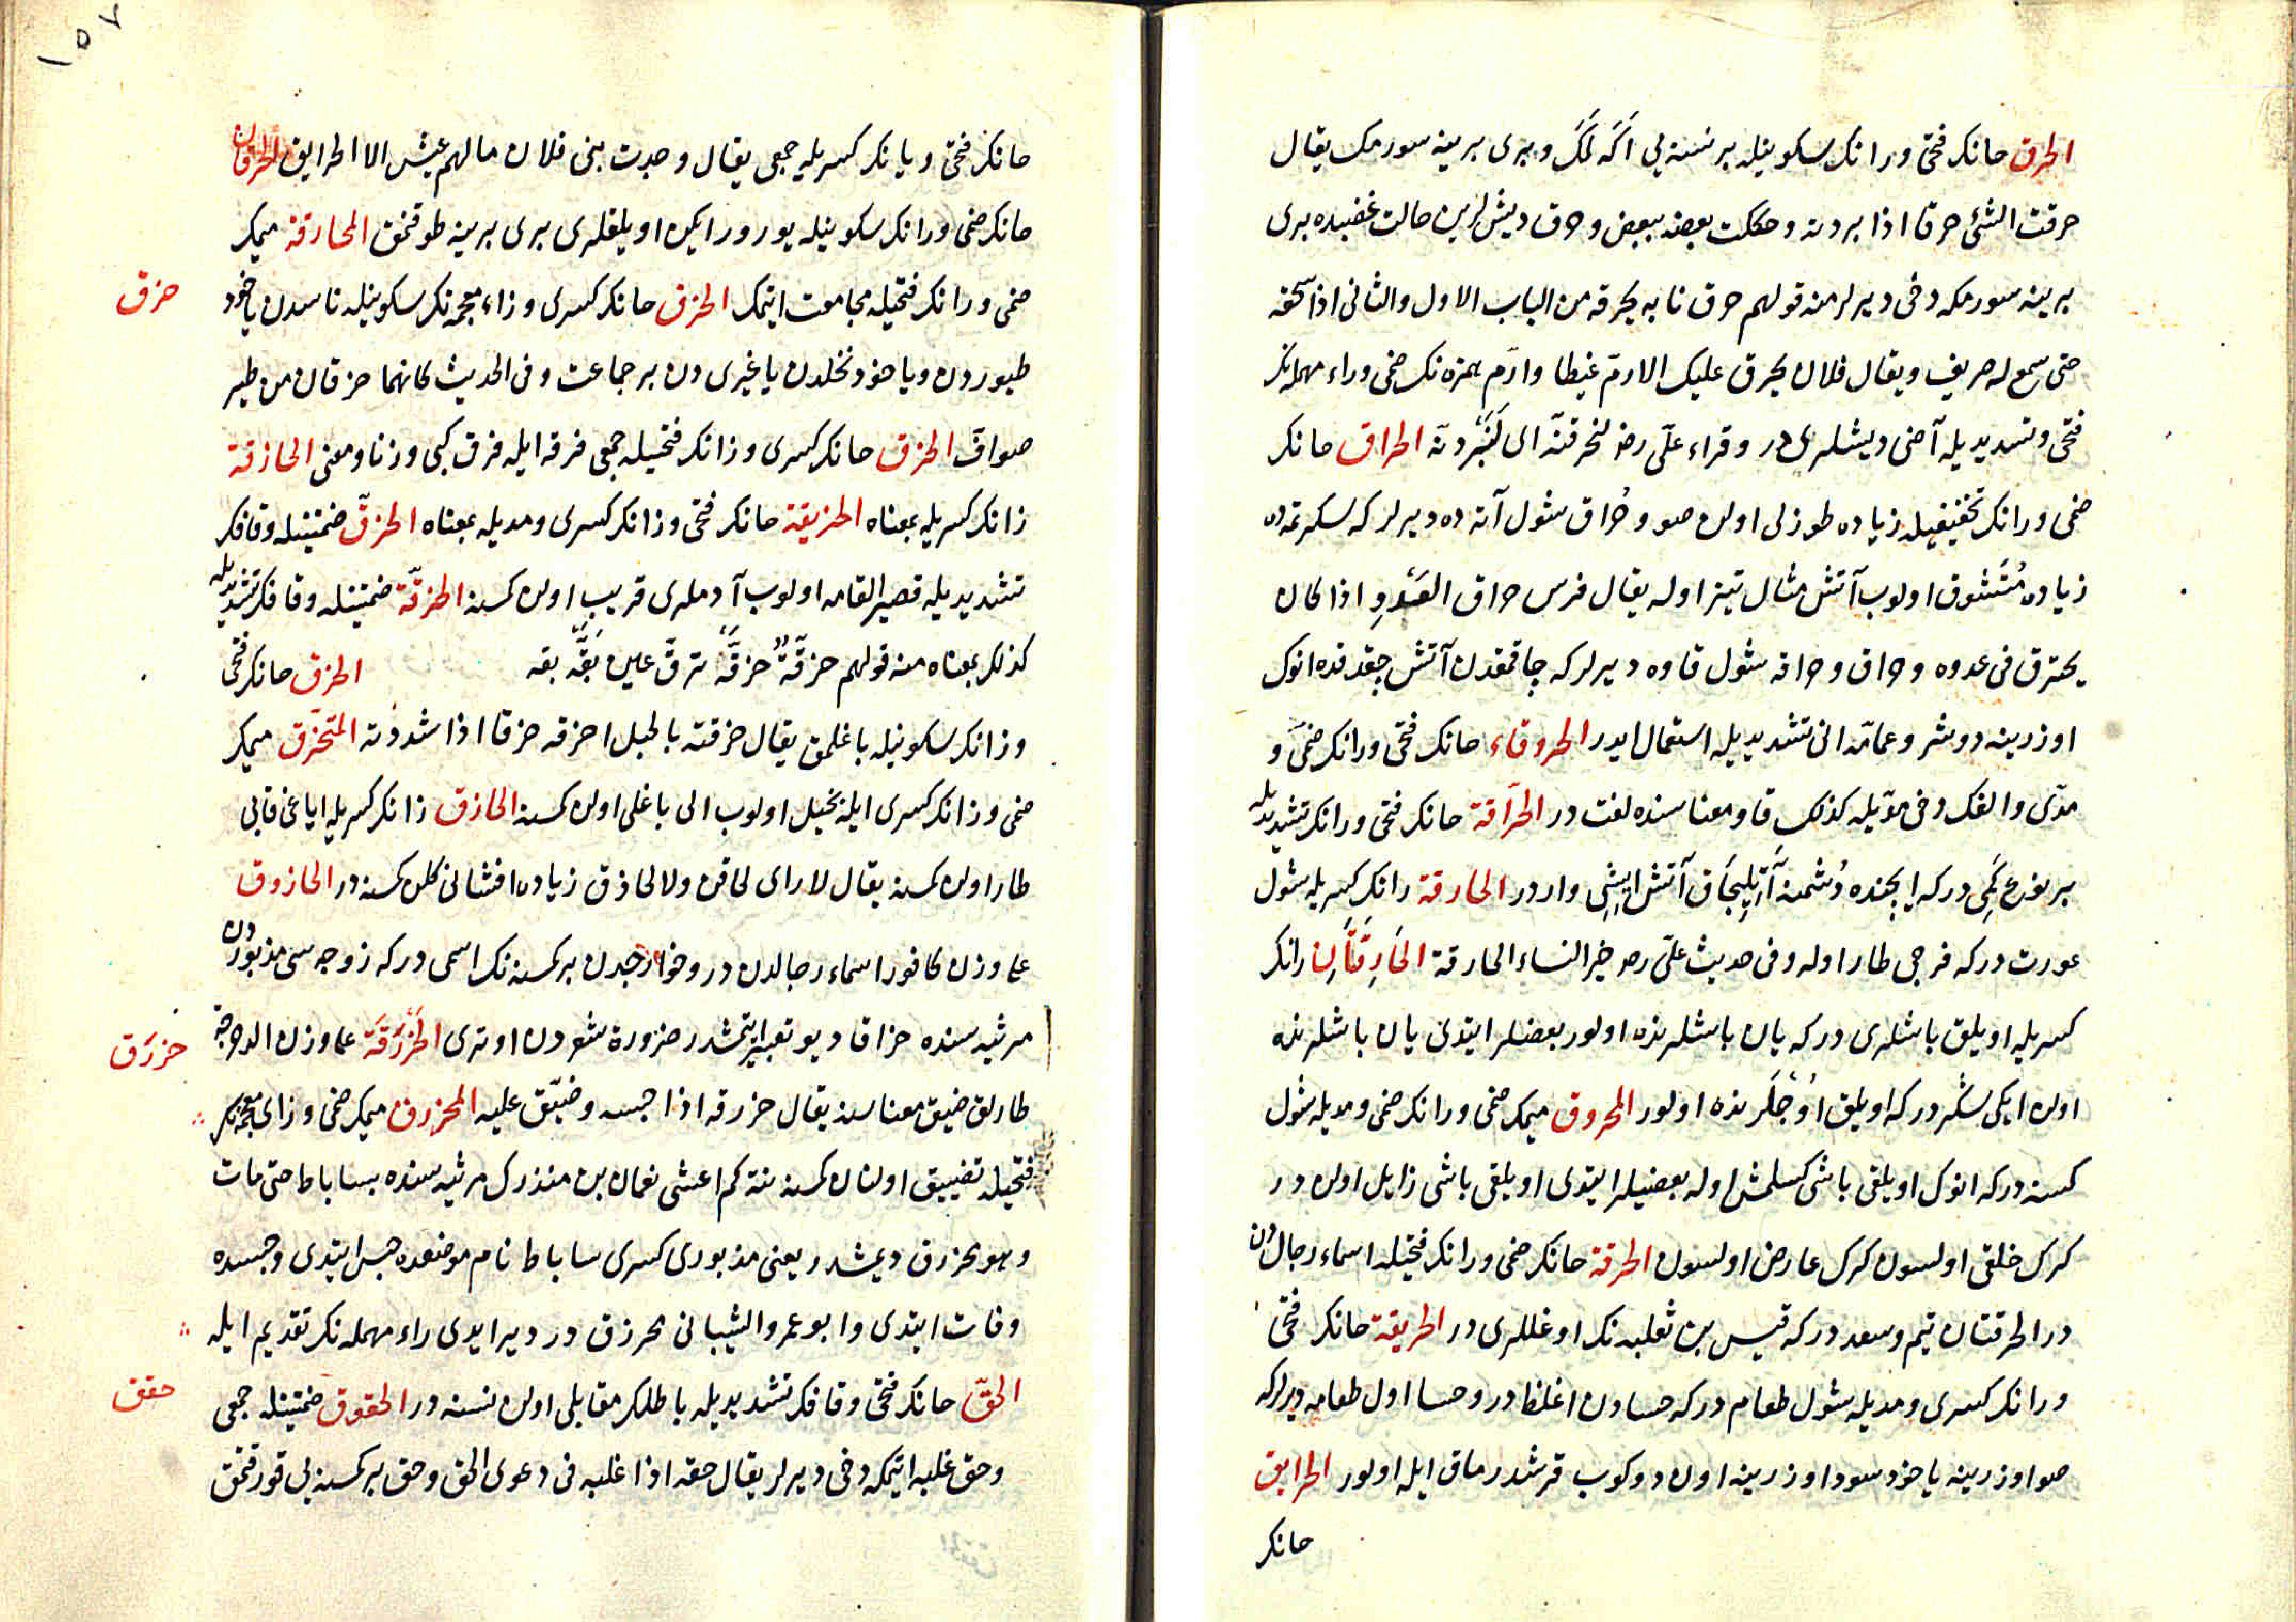 الحرق حانك فتحى ورانك سكونيله بر نسنه يى اكه لمك و برى برينه سورمك يقال
حرقت الشئ حرقا اذا بردته وحككت بعضه ببعض وحرق ديشلرين حالت غضبده برى
برينه سورمكه دخى ديرلر منه قولهم حرق نابه يحرقه من الباب الاول والثانى اذا سحقه
حتى سمع له صريف ويقال فلان يحرق عليك الارم غيظا وارم همزه نك ضمى وراء مهمله نك
فتحى وتشديديله آضى ديشلرى در وقراء على رضه لنحرقنه اى لنبردنه الحراق حانك
ضمى ورانك تخفيفيله زياده طوزلى اولن صو وحراق شول آته ده ديرلر كه سكرتمه ده
زياده متشوق اولوب آتش مثال تيز اوله يقال فرس حراق العدو اذا كان
يحترق فى عدوه وحراق وحراقه شول قاوه ديرلر كه چاقمقدن آتش چقدقده انوك
اوزرينه دوشر وعامه انى تشديديله استعمال ايدر الحروقاء حانك فتحى ورانك ضمى و
مدى والفك دخى مديله كذلك قاو معناسنده لغت در الحراقة حانك فتحى ورانك تشديديله
بر نوع كمى در كه ايچنده دشمنه آتيليجاق آتش ايشى واردر الحارقة رانك كسريله شول
عورت در كه فرجى طار اوله وفى حديث على رضه خير النساء الحارقة الحارقتان رانك
كسريله اويلق باشلرى در كه يان باشلرنده اولور بعضلر ايتدى يان باشلرنده
اولن ايكى سكر در كه اويلق اوجلرنده اولور المحروق ميمك ضمى ورانك ضمى ومديله شول
كسنه در كه انوك اويلقى باشى كسلمش اوله بعضيلر ايتدى اويلقى باشى زايل اولن در
كرك خلقى اولسون كرك عارض اولسون الحرقة حانك ضمى ورانك فتحيله اسماء رجالدن
در الحرقتان تيم وسعد در كه قيس بن ثعلبه نك اوغللرى در الحريقة حانك فتحى
ورانك كسرى ومديله شول طعام در كه حسادن اغلظ در وحسا اول طعامه ديرلر كه
صو اوزرينه ياخود سود اوزرينه اون دوكوب قرشدرماق ايله اولور الحرايق
حانك
١٥٧
حانك فتحى ويانك كسريله جمعى يقال وجدت بنى فلان مالهم عيش الا الحرايق الحرقان
حانك ضمى ورانك سكونيله يورورايكن اويلقلرى برى برينه طوقنمق المحارقة ميمك
ضمى ورانك فتحيله مجامعت ايتمك الحزق حانك كسرى وزاء معجمه نك سكونيله ناسدن ياخود
حزق
طيوردن وياخود نخلدن ياغيرى دن بر جماعت وفى الحديث كانهما حزقان من طير
صواف الحزق حانك كسرى وزانك فتحيله جمعى فرقه ايله فرق كبى وزنا ومعنى الحازقة
زانك كسريله بمعناه الحزيقة حانك فتحى وزانك كسرى ومديله بمعناه الحزق ضمتينله وقافك
تشديديله قصير القامه اولوب آدملرى قريب اولن كسنه الحزقة ضمتينله وقافك تشديديله
كذلك بمعناه منه قولهم حزقة حزقة ترق عين بقه بقه الحزق حانك فتحى
وزانك سكونيله باغلمق يقال حزقته بالحبل احزقه حزقا اذا شددته المتحزق ميمك
ضمى وزانك كسرى ايله بخيل اولوب الى باغلى اولن كسنه الحازق زانك كسريله اياغى قابى
طار اولن كسنه يقال لا راى لحاقن ولا لحازق زياده افشانى كلن كسنه در الحازوق
على وزن كافور اسماء رجالدن در وخوارجدن بر كسنه نك اسمى در كه زوجه سى مذبورك
مرثيه سنده حزاقا ديو تعبير ايتمشدر ضرورة شعردن اوترى الحزرقة على وزن الدحرجة
حزرق
طارلق ضيق معناسنه يقال حزرقه اذا حبسه وضيق عليه المحزرق ميمك ضمى وزاى معجمه نك
فتحيله تضييق اولنان كسنه نته كم اعشى نعمان بن منذرك مرثيه سنده بساباط حتى مات
وهو محزرق ديمشدر يعنى مذبورى كسرى ساباط نام موضعده حبس ايتدى وحبسده
وفات ايتدى وابو عمرو الشيبانى محرزق در ديرايدى راء مهمله نك تقديمى ايله
الحق حانك فتحى وقافك تشديديله باطلك مقابلى اولن نسنه در الحقوق ضمتينله جمعى
حقق
وحق غلبه ايتمكه دخى ديرلر يقال حقه اذا غلبه فى دعوى الحق وحق بر كسنه يى قورقتمق